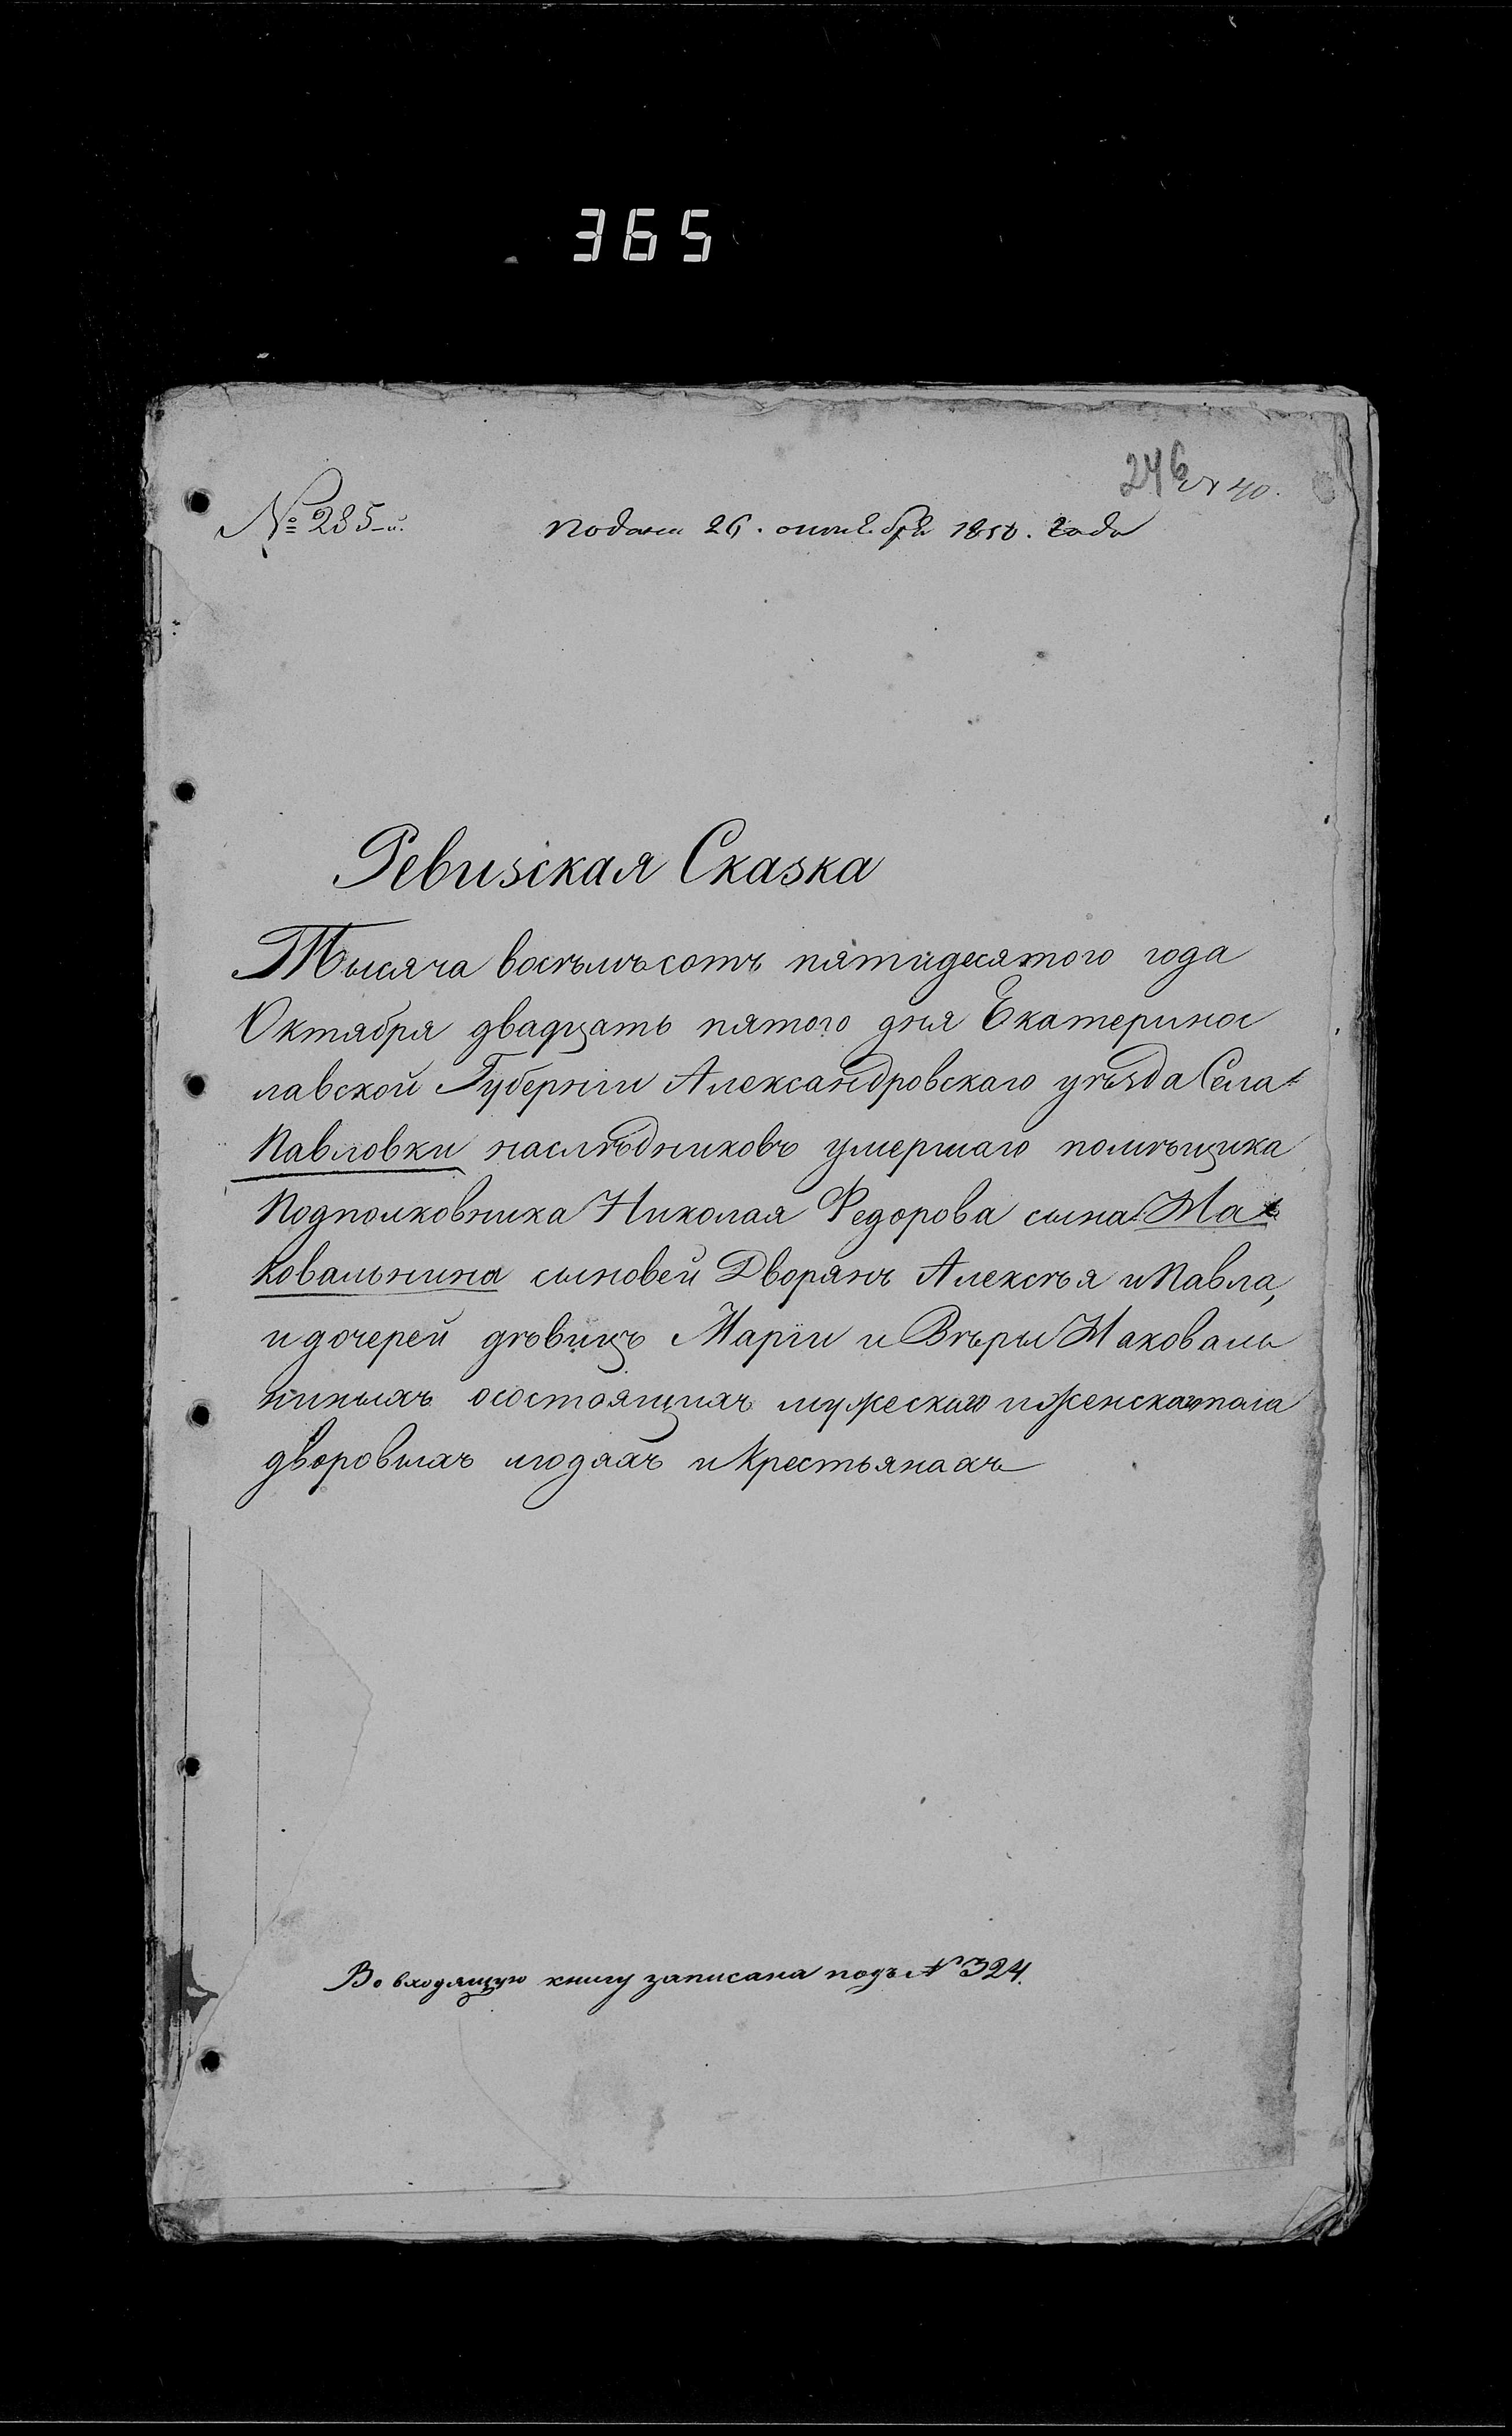 365
246
№ 40.
№ 235-й.
подана 26. октября 1850. года
Ревизская Сказка
Тысяча восѣмьсотъ пятидесятого года
Октября двадцать пятого дня Екатеринос
лавской Губернiи Александровскаго уѣзда Села
Павловки наслѣдниковъ умершаго помѣщика
Подполковника Николая Федорова сына Ма
ковальнина сыновей Дворянъ Алексѣя и Павла,
и дочерей дѣвицъ Марiи и Вѣры Маковаль
ниныхъ о состоящихъ мужескаго и женскаго пола
дворовыхъ людяхъ и Крестьянахъ
Во входящую книгу записана подъ № 324.